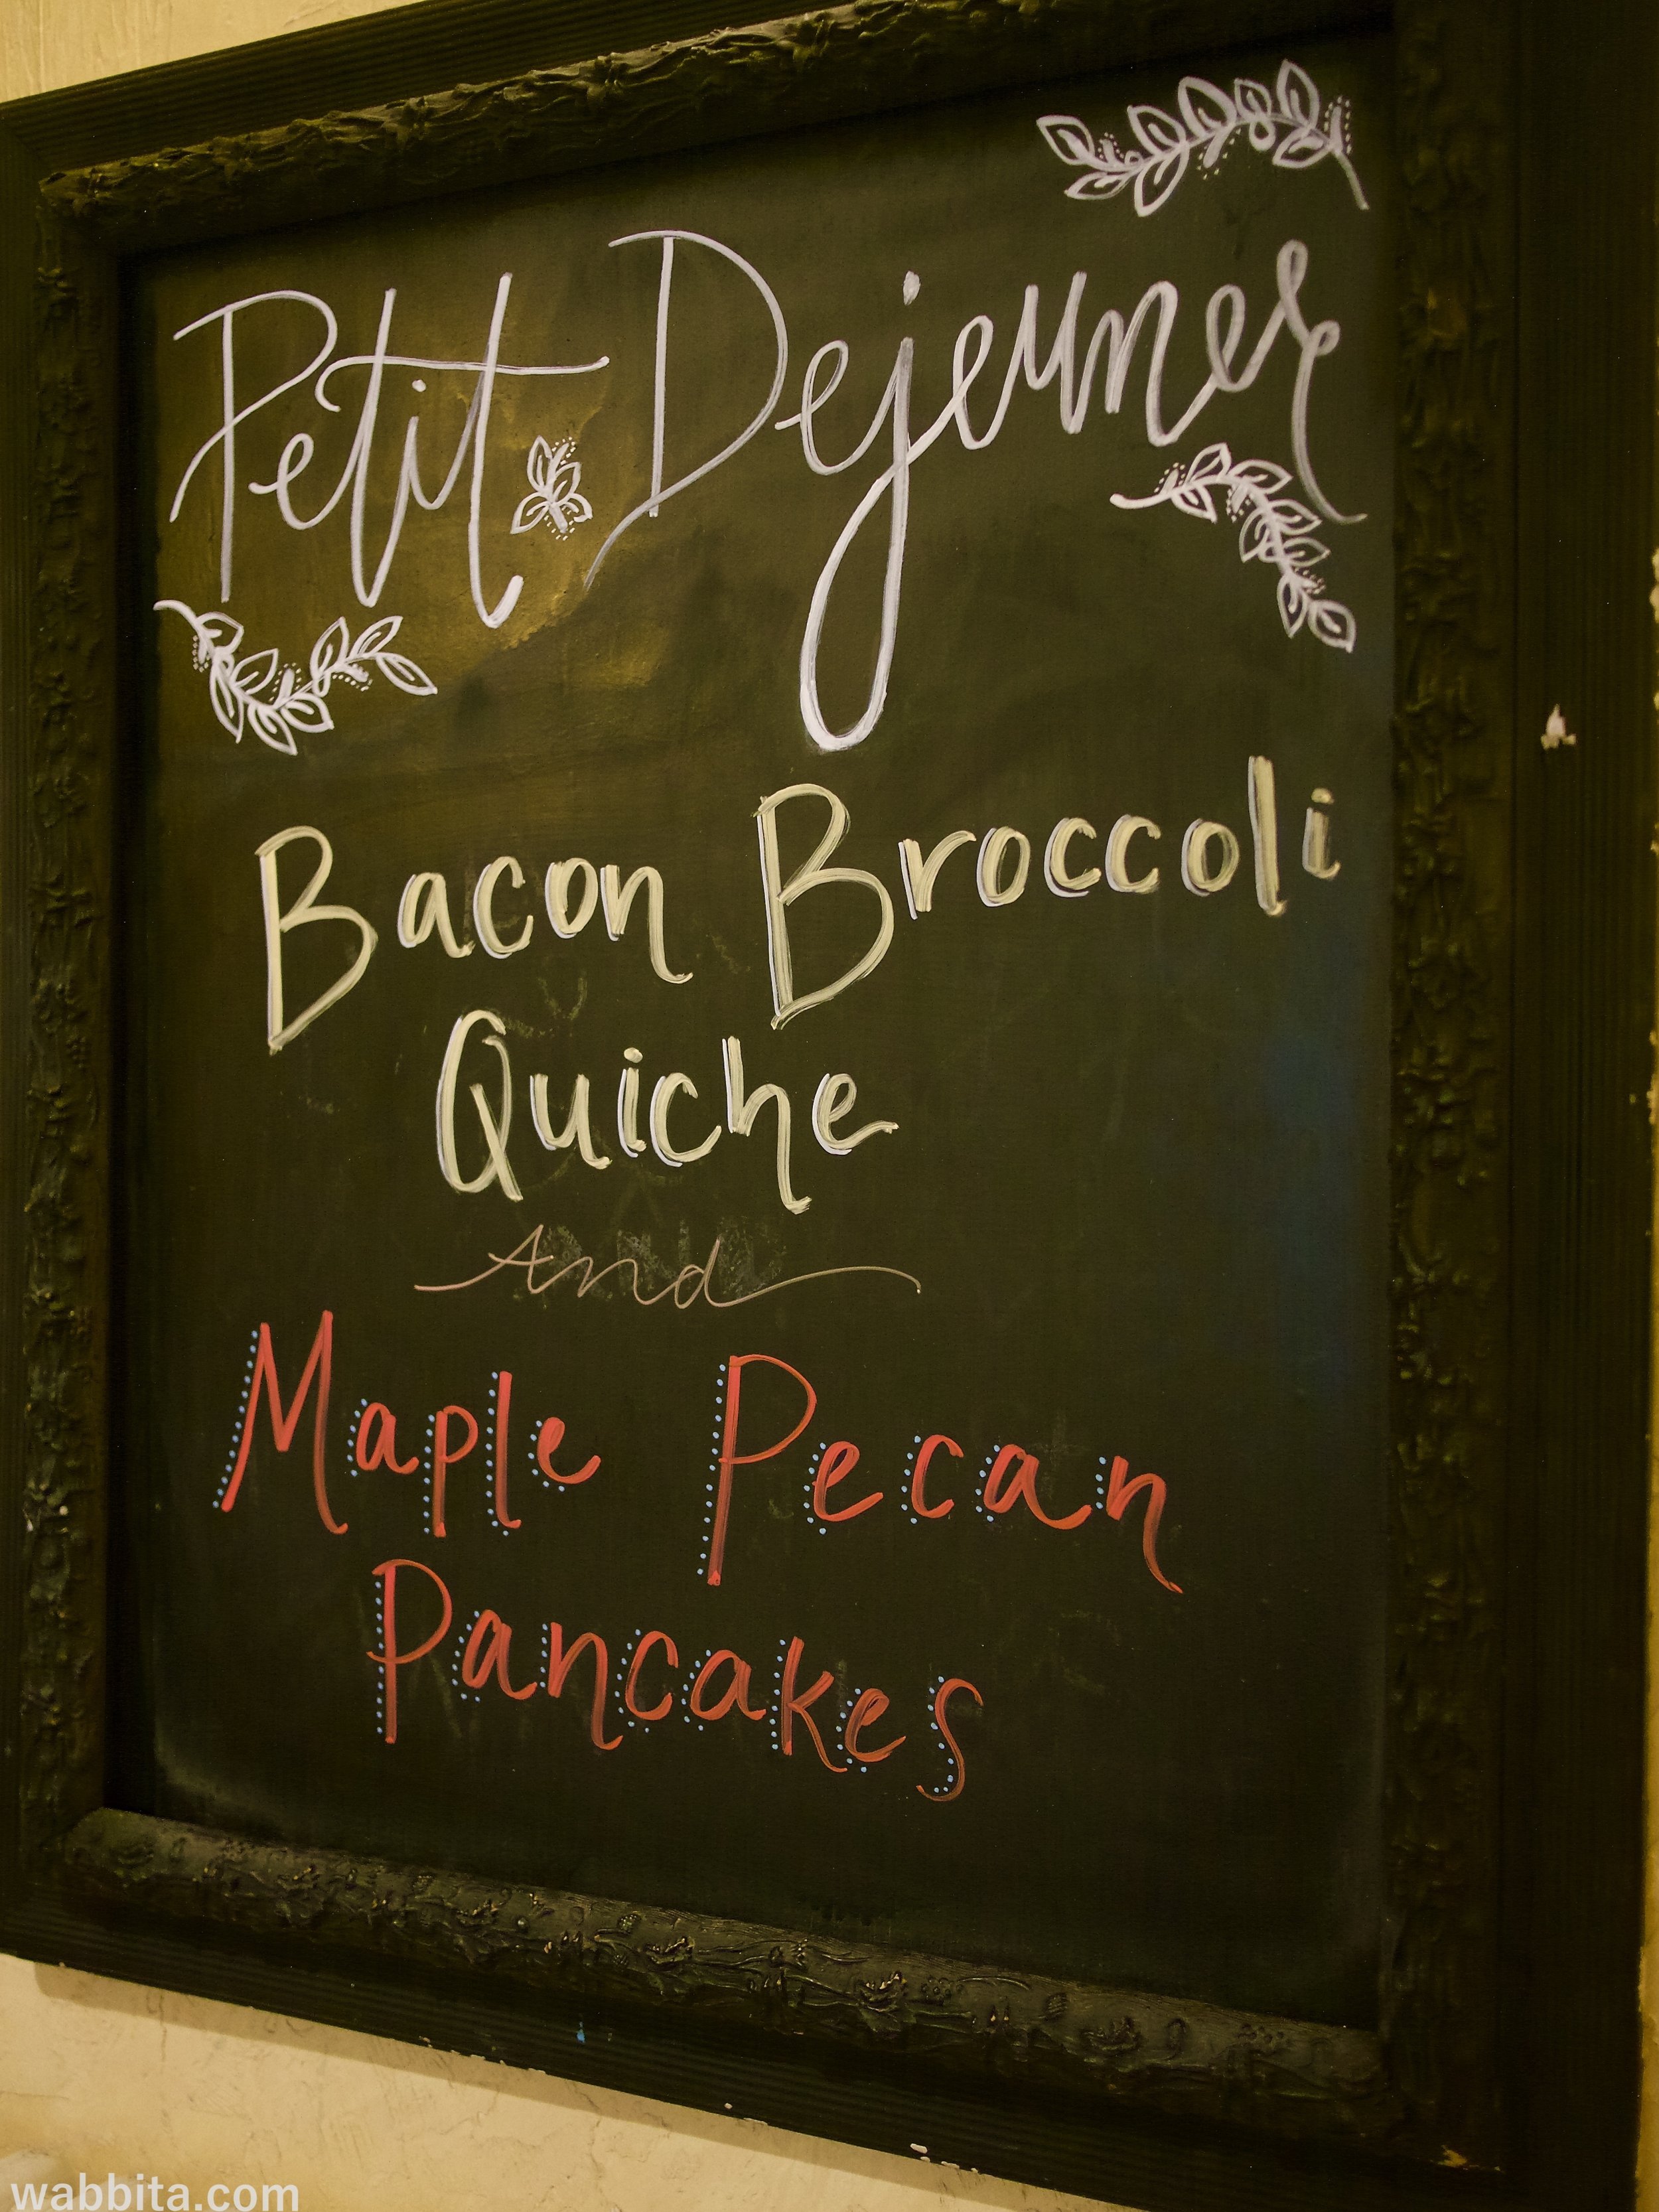 Petit Dejeuner
Bacon Broccoli
Quiche
And
Maple Pecan
Pancakes
wabbita.com